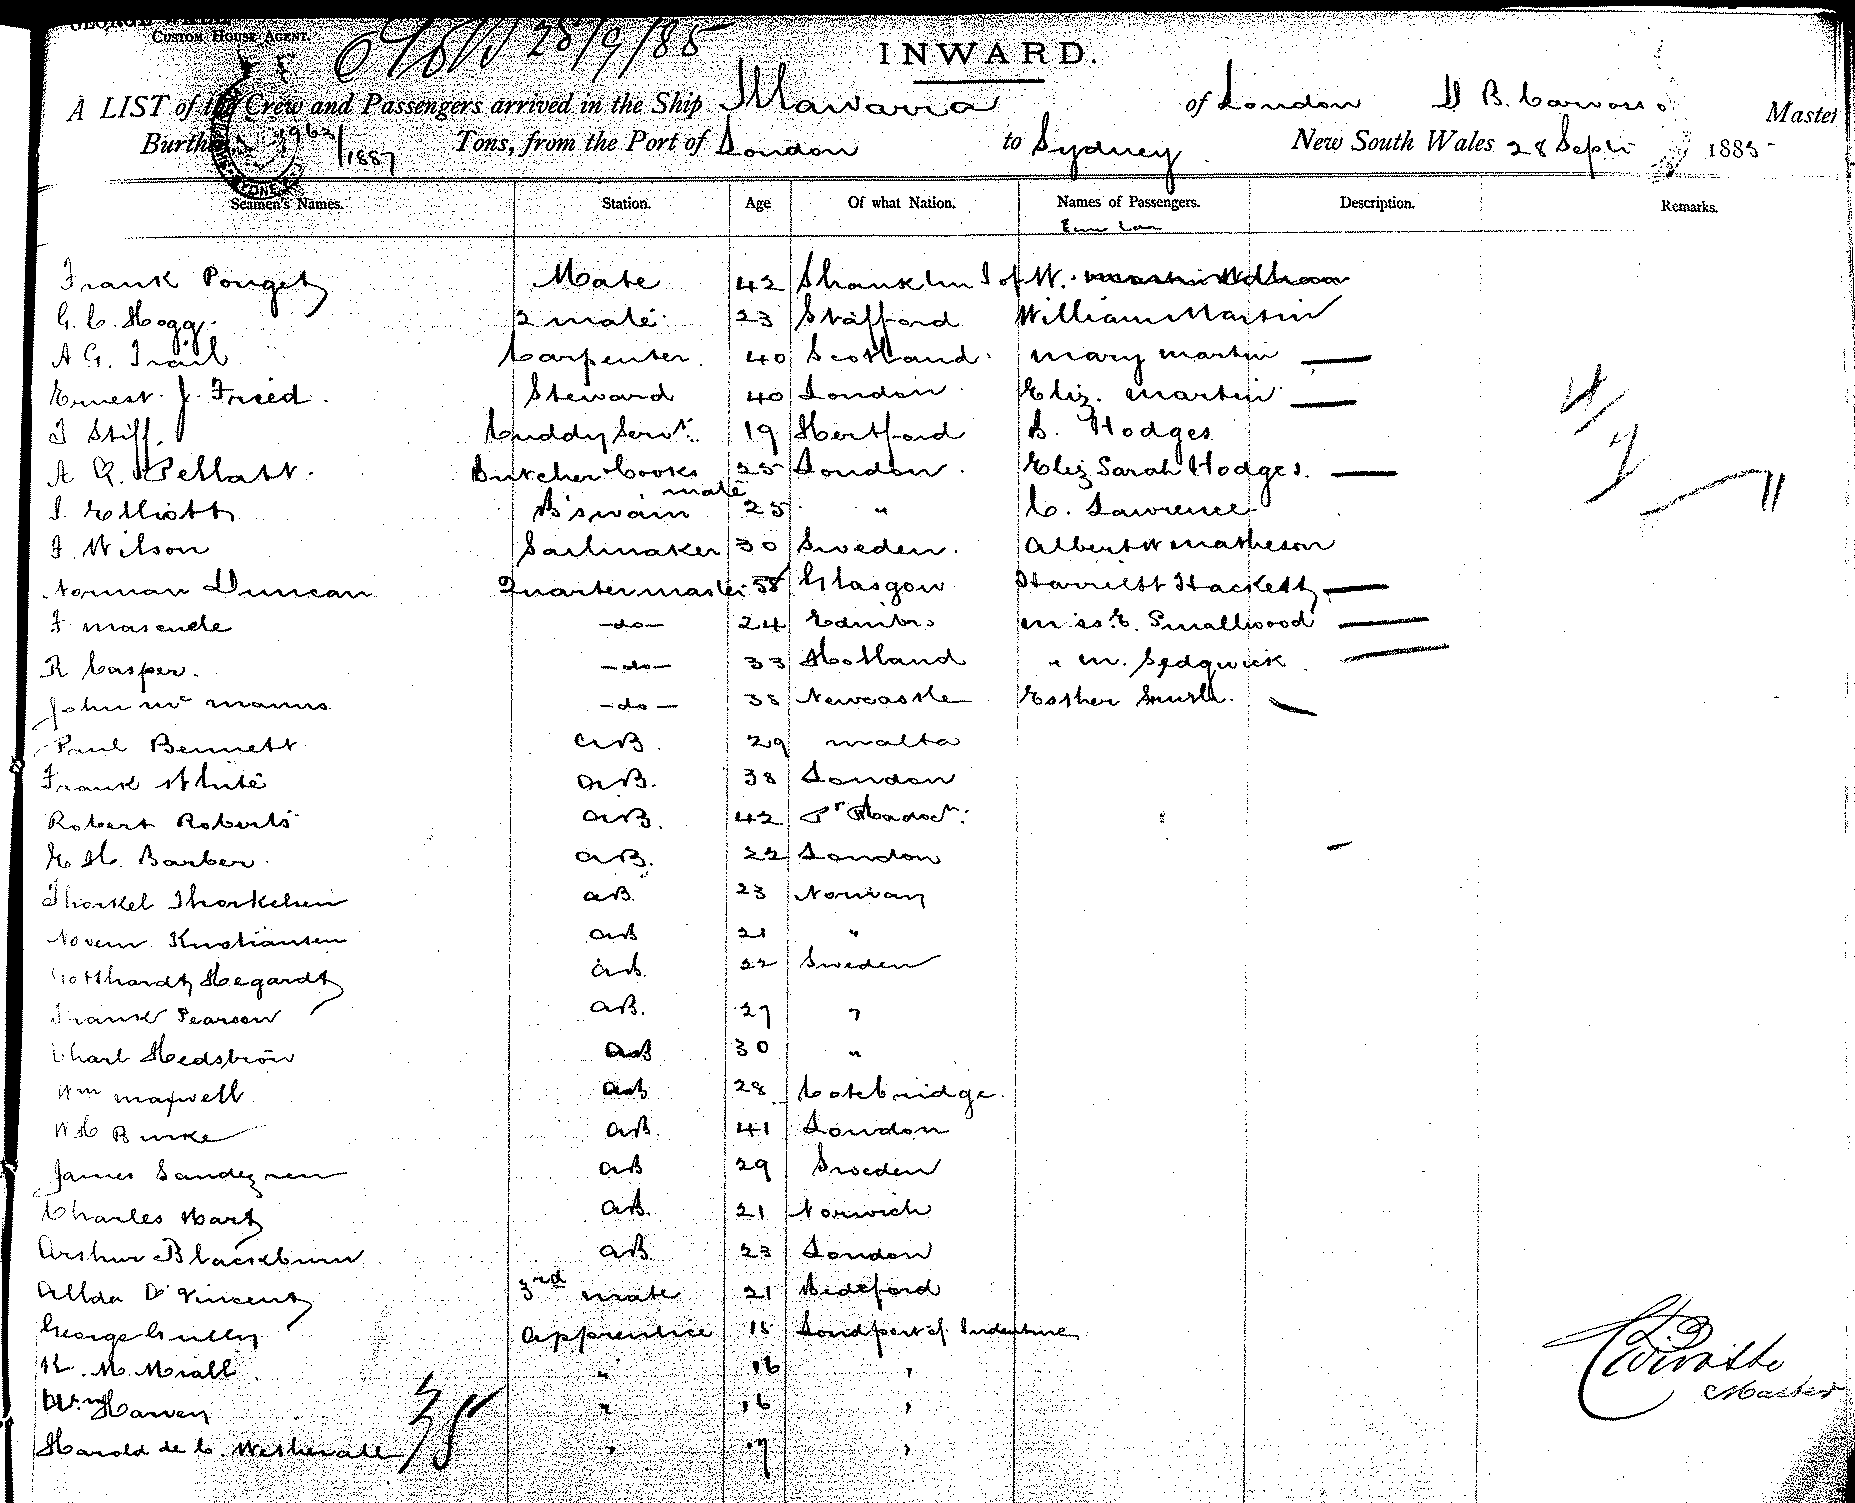 CUSTOM HOUSE AGENT.
28/9/85
INWARD.
A LIST of the Crew and Passengers arrived in the Ship Illawarra of London D B. Carvosso Master
Burthen 1963/1887 Tons, from the Port of London to Sydney New South Wales 28 Septr 1885
Seamen's Names. Station. Age Of what Nation. Names of Passengers. Description. Remarks.
Frank Pouget Mate 42 Shanklin I of W.
G. C. Hogg. 2 mate 23 Stafford William Martin
A G. Trail Carpenter. 40 Scotland. Mary Martin —
Ernest. J. Freed. Steward 40 London Eliz. Martin —
J Stiff. Cuddy Servt. 19 Hertford B. Hodges
A Q. Pellatt. Butcher Cooks mate 25 London. Eliz Sarah Hodges. —
J. Elliott B'swain 25 " C. Lawrence
J Wilson Sailmaker 30 Sweden. Albert W Matheson
Norman Duncan Quartermaster 58 Glasgow Harriett Hackett —
F —do— 24 Edinbro Miss E. Smallwood —
R Casper. —do— 33 Holland " M. Sedgwick —
John Mc Manus —do— 38 Newcastle Esther Smith. —
Paul Bennett AB. 29 Malta
Frank White AB. 38 London
Robert Roberts AB. 42 Pt Madoc
E H. Barber AB. 22 London
Thorkel Thorkelsen AB. 23 Norway
Kristiansen AB 21 "
Gotthardt Hegardt AB. 22 Sweden
Frank Pearson AB. 27 "
Charl Hedström AB 30 "
Wm Maxwell AB 28 Cotebridge.
W H Burke AB. 41 London
James Sandegren AB 29 Sweden
Charles Hart AB. 21 Norwich
Arthur Blackburn AB 23 London
Allda D Vincent 3rd mate 21 Bideford
George Gully Apprentice 18 Indenture
R. M. Miall. " 16 "
Wm Haven " 16 "
Harold de C. " 17 "
Master